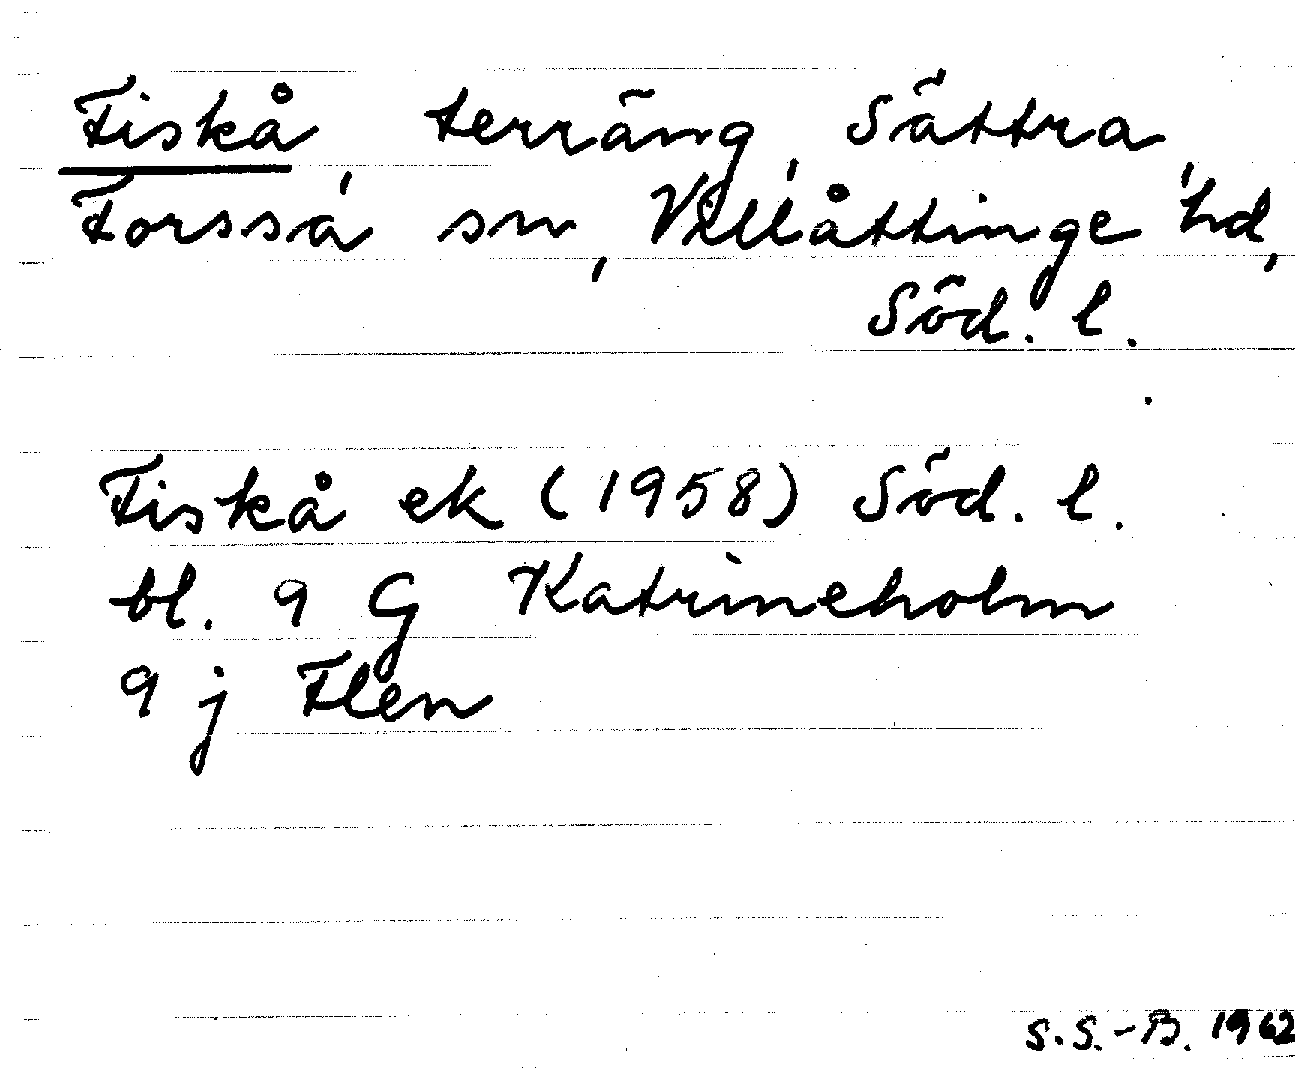 Fiskå, terräng, Sättra,
Forssa sn, Villåttinge hd,
Söd. l.
Fiskå ek (1958) Söd. l.
bl. 9 G Katrineholm
9 j Flen
S.S.-B. 1962